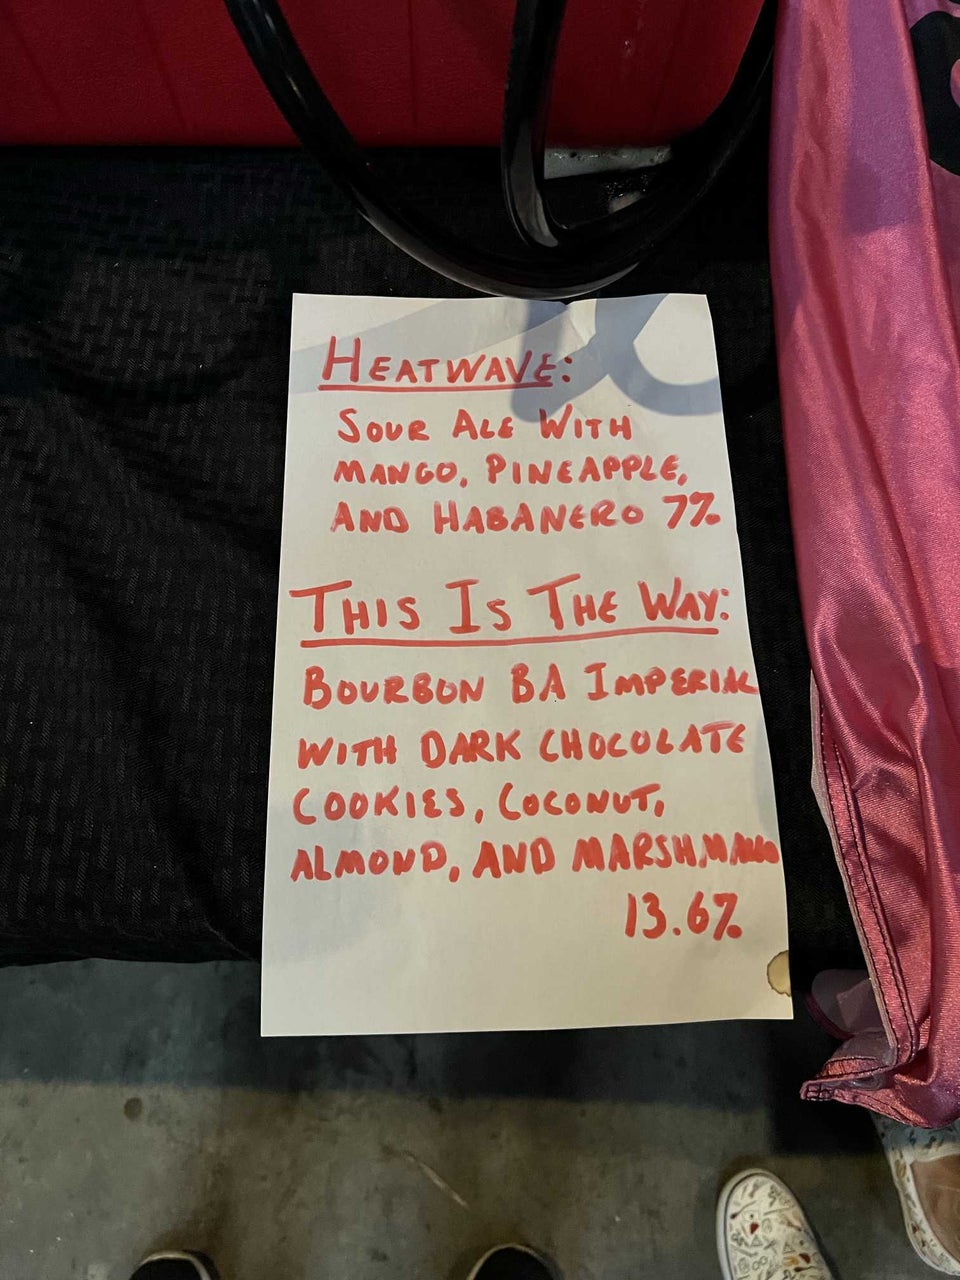 HEATWAVE:
SOUR ALE WITH
MANGO, PINEAPPLE,
AND HABANERO 7%
THIS IS THE WAY:
BOURBON BA IMPERIAL
WITH DARK CHOCOLATE
COOKIES, COCONUT,
ALMOND, AND MARSHMALLO
13.6%